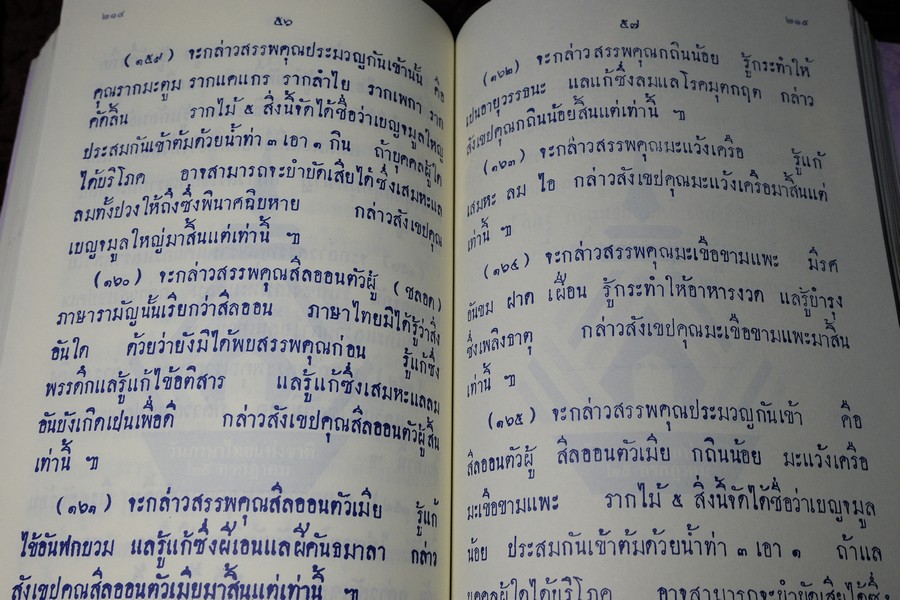 ๒๑๔
๕๖
(๑๕๙) จะกล่าวสรรพคุณประมวญกันเข้านั้น คือ
คุณรากมะตูม รากแคแกร รากลำไย รากเพกา ราก
คัดลิ้น รากไม้ ๕ สิ่งนี้จัดได้ชื่อว่าเบญจมูลใหญ่
ประสมกันเข้าต้มด้วยน้ำท่า ๓ เอา ๑ กิน ถ้าบุคคลผู้ใด
ได้บริโภค อาจสามารถจะบำบัดเสียได้ซึ่งเสมหะแล
ลมทั้งปวงให้ถึงซึ่งพินาศฉิบหาย กล่าวสังเขปคุณ
เบญจมูลใหญ่มาสิ้นแต่เท่านี้ ๚
(๑๖๐) จะกล่าวสรรพคุณสีลออนตัวผู้ (ชลอด)
ภาษารามัญนั้นเรียกว่าสีลออน ภาษาไทยมิได้รู้ว่าสิ่ง
อันใด ด้วยว่ายังมิได้พบสรรพคุณก่อน รู้แก้ซึ่ง
พรรดึกแลรู้แก้ไข้อติสาร แลรู้แก้ซึ่งเสมหะแลลม
อันยังเกิดเปนเพื่อดี กล่าวสังเขปคุณสีลออนตัวผู้สิ้น
เท่านี้ ๚
(๑๖๑) จะกล่าวสรรพคุณสีลออนตัวเมีย รู้แก้
ไข้อันฟกบวม แลรู้แก้ซึ่งฝีเอนแลฝีคันธมาลา กล่าว
สังเขปคุณสีลออนตัวเมียมาสิ้นแต่เท่านี้ ๚
๕๗
๒๑๕
(๑๖๒) จะกล่าวสรรพคุณกถินน้อย รู้กระทำให้
เปนอายุวรรธนะ แลแก้ซึ่งลมแลโรคมุตกฤต กล่าว
สังเขปคุณกถินน้อยสิ้นแต่เท่านี้ ๚
(๑๖๓) จะกล่าวสรรพคุณมะแว้งเครือ รู้แก้
เสมหะ ลม ไอ กล่าวสังเขปคุณมะแว้งเครือมาสิ้นแต่
เท่านี้ ๚
(๑๖๔) จะกล่าวสรรพคุณมะเขือขามแพะ มีรศ
อันขม ฝาด เฝื่อน รู้กระทำให้อาหารงวด แลรู้บำรุง
ซึ่งเพลิงธาตุ กล่าวสังเขปคุณมะเขือขามแพะมาสิ้น
เท่านี้ ๚
(๑๖๕) จะกล่าวสรรพคุณประมวญกันเข้า คือ
สีลออนตัวผู้ สีลออนตัวเมีย กถินน้อย มะแว้งเครือ
มะเขือขามแพะ รากไม้ ๕ สิ่งนี้จัดได้ชื่อว่าเบญจมูล
น้อย ประสมกันเข้าต้มด้วยน้ำท่า ๓ เอา ๑ ถ้าแล
บุคคลผู้ใดได้บริโภค อาจสามารถจะบำบัดเสียได้ซึ่ง